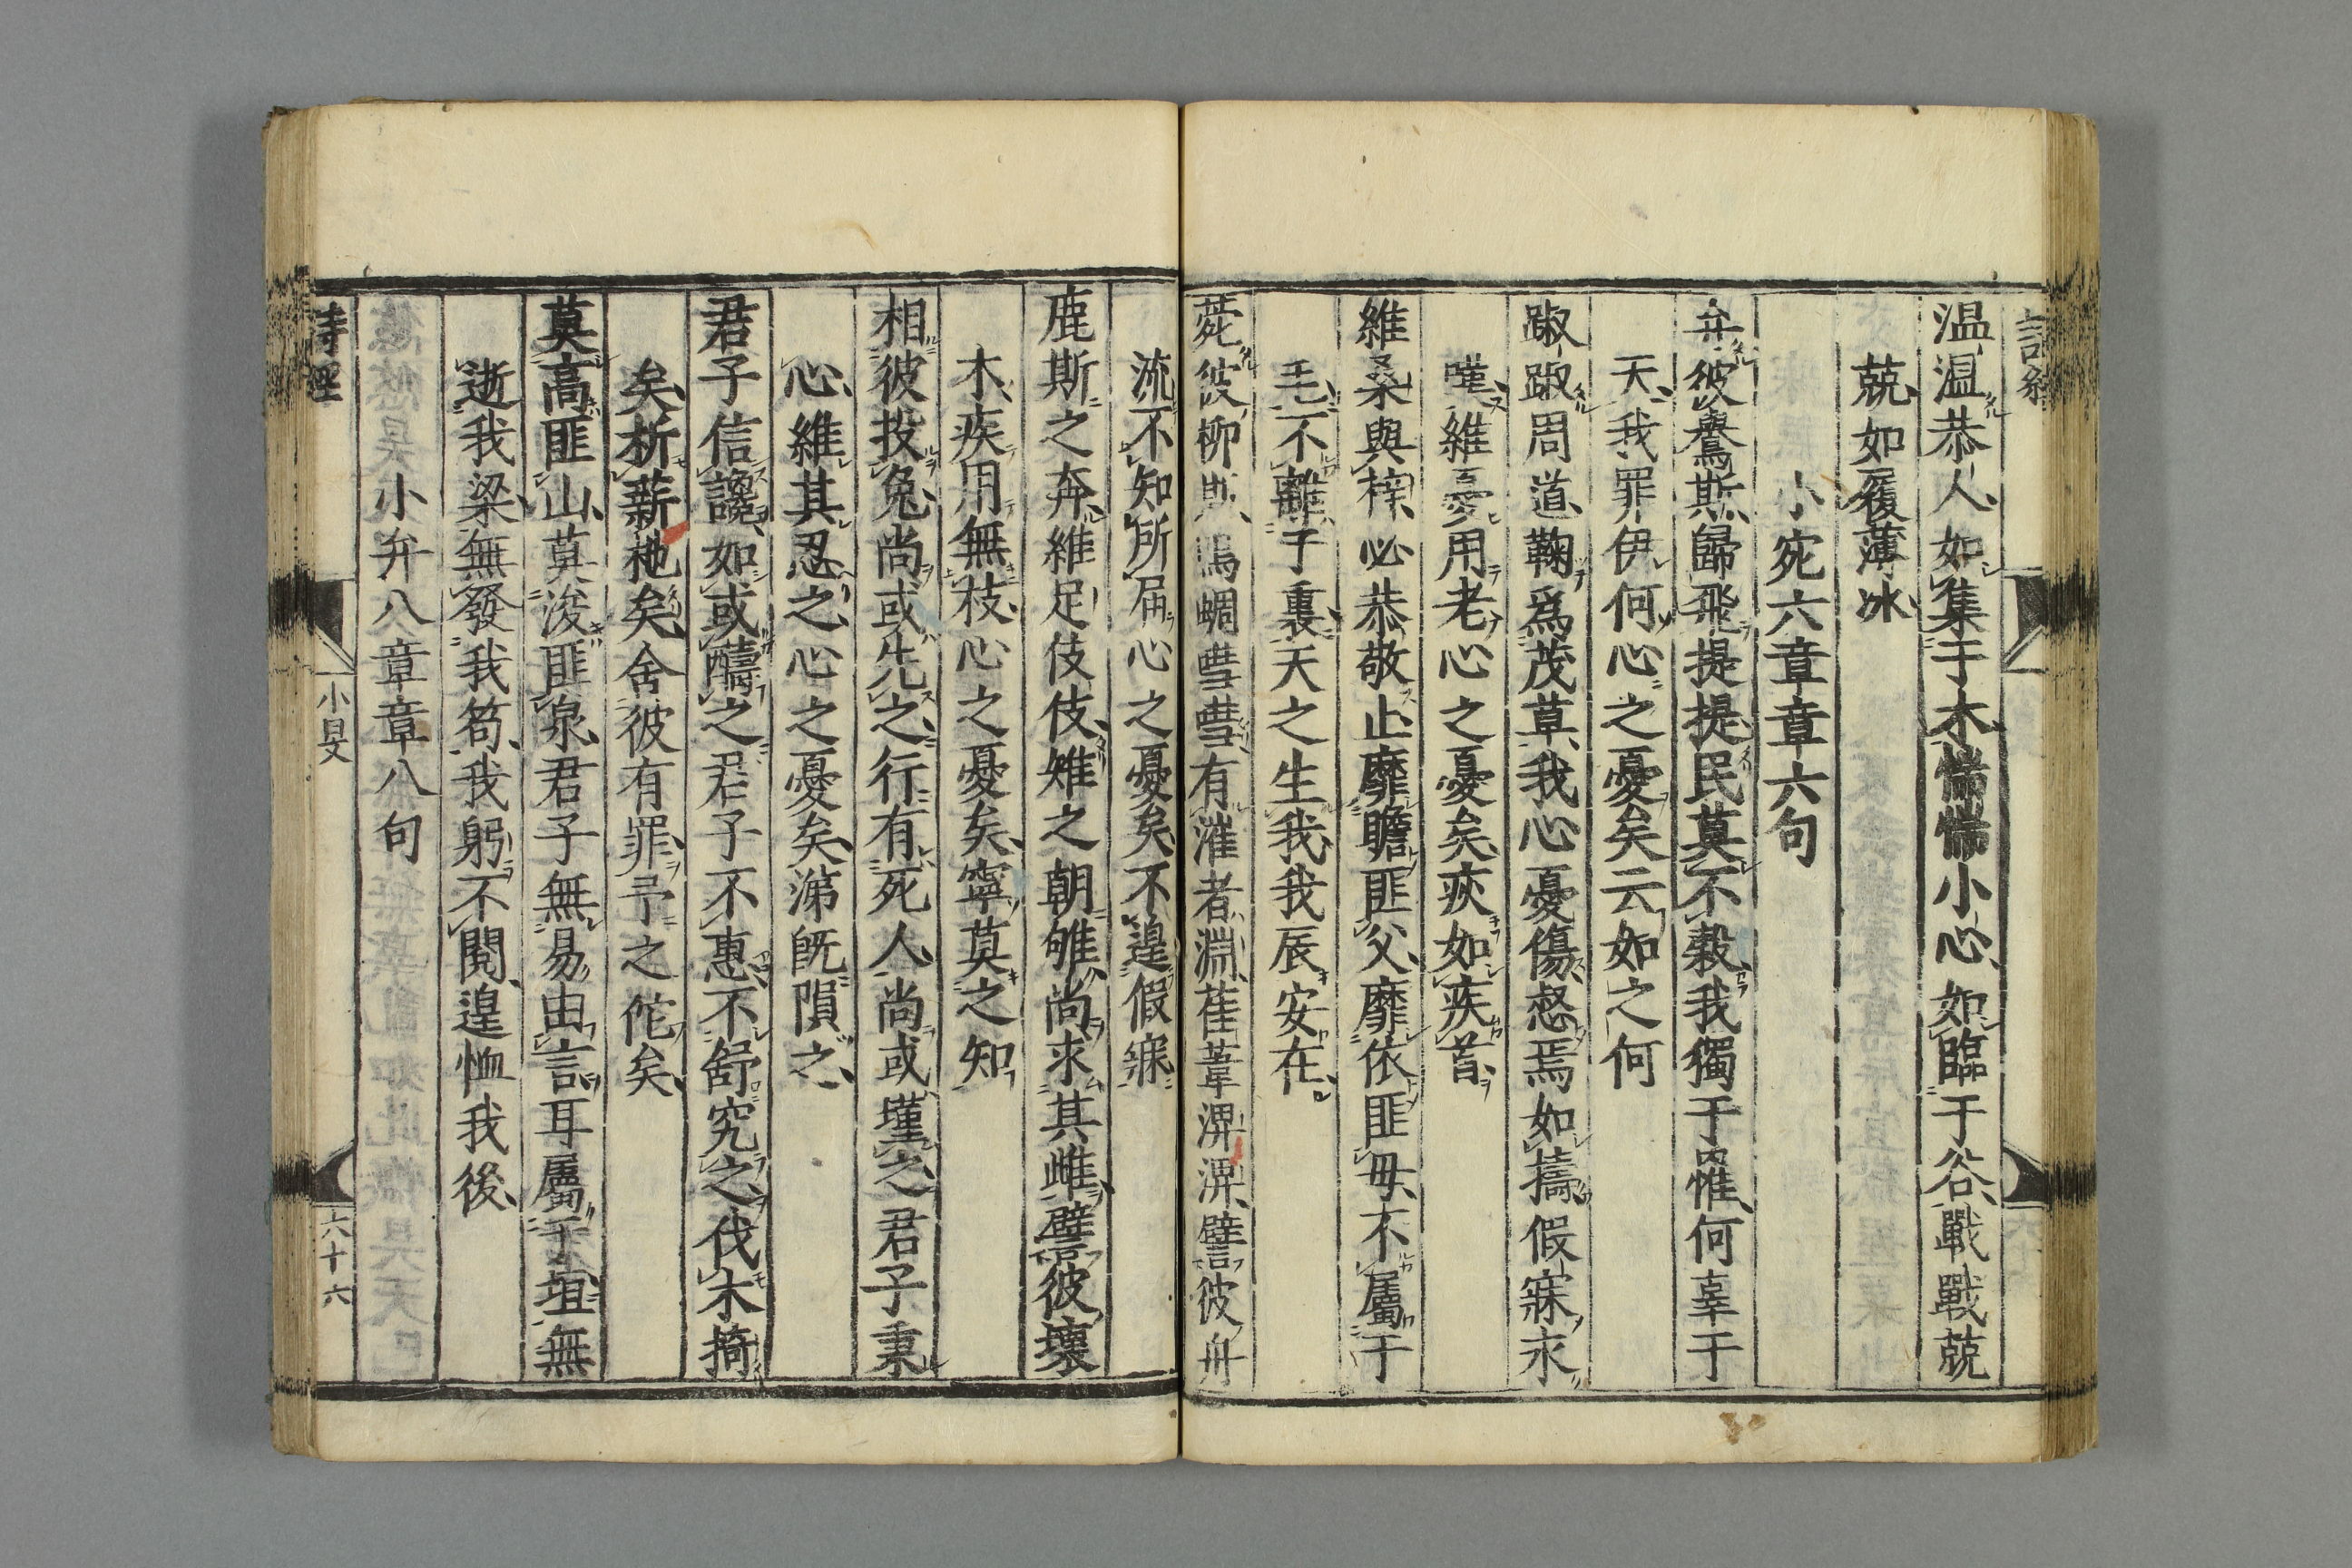 溫溫恭人如集于木惴惴小心如臨于谷戰戰兢
兢如履薄冰
小宛六章章六句
弁彼鸒斯歸飛提提民莫不穀我獨于罹何辜于
天我罪伊何心之憂矣云如之何
踧踧周道鞠爲茂草我心憂傷惄焉如擣假寐永
嘆維憂用老心之憂矣疢如疾首
維桑與梓必恭敬止靡瞻匪父靡依匪毋不屬于
毛不離于裏天之生我我辰安在
菀彼柳斯鳴蜩嘒嘒有漼者淵萑葦淠淠譬彼舟
流不知所届心之憂矣不遑假寐
鹿斯之奔維足伎伎雉之朝雊尚求其雌譬彼壞
木疾用無枝心之憂矣寧莫之知
相彼投兔尚或先之行有死人尚或墐之君子秉
心維其忍之心之憂矣涕旣隕之
君子信讒如或醻之君子不惠不舒究之伐木掎
矣析薪杝矣舍彼有罪予之佗矣
莫高匪山莫浚匪泉君子無易由言耳屬于垣無
逝我梁無發我笱我躬不閱遑恤我後
小弁八章章八句
詩經
小旻
六十六